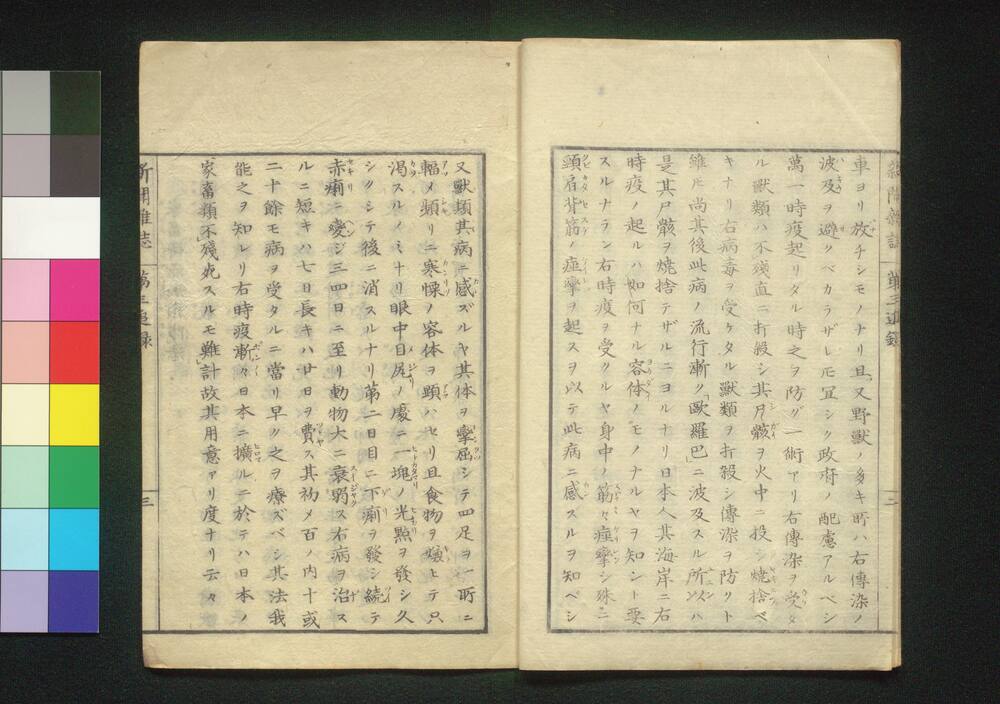 車ヨリ放チシモノナリ且又野獣ノ多キ所ハ右傳染ノ
波及ヲ避クベカラザレ𪜈冝シク政府ノ配慮アルベシ
萬一時疫起リタル時之ヲ防グ一術アリ右傳染ヲ受タ
ル獣類ハ不殘直ニ打殺シ其尸骸ヲ火中ニ投シ焼捨ベ
キナリ右病毒ヲ受ケタル獣類ヲ打殺シ傳染ヲ防リト
雖𪜈尚其後此病ノ流行漸ク「歐羅巴」ニ波及スル所以ハ
是其尸骸ヲ焼捨テザルニヨルナリ日本人其海岸ニ右
時疫ノ起ルハ如何ナル容体ノモノナルヤヲ知ント要
スルナラン右時疫ヲ受クルヤ身中ノ筋々痙攣シ殊ニ
頸肩背筋ノ痙攣ヲ起スヲ以テ此病ニ感スルヲ知ベシ
二
又獣類其病ニ感ズルヤ其体ヲ攣屈シテ四足ヲ一所ニ
輻メ頻リニ寒慄ノ容体ヲ顕ハセリ且食物ヲ嫌ヒテ只
渇スルノミナリ眼中目尻ノ處ニ一塊ノ光點ヲ發シ久
シクシテ後ニ消スルナリ第二日目ニ下痢ヲ發シ続テ
赤痢ニ變ジ三四日ニ至リ動物大ニ衰弱ス右病ヲ治ス
ルニ短キハ七日長キハ廿日ヲ費ス其初メ百ノ内十或
二十餘モ病ヲ受タルニ當リ早ク之ヲ療ズベシ其法我
能之ヲ知レリ右時疫漸々日本ニ擴ルニ於テハ日本ノ
家畜類不殘死スルモ難計故其用意アリ度ナリ云々
新聞雑誌 第三追録
三